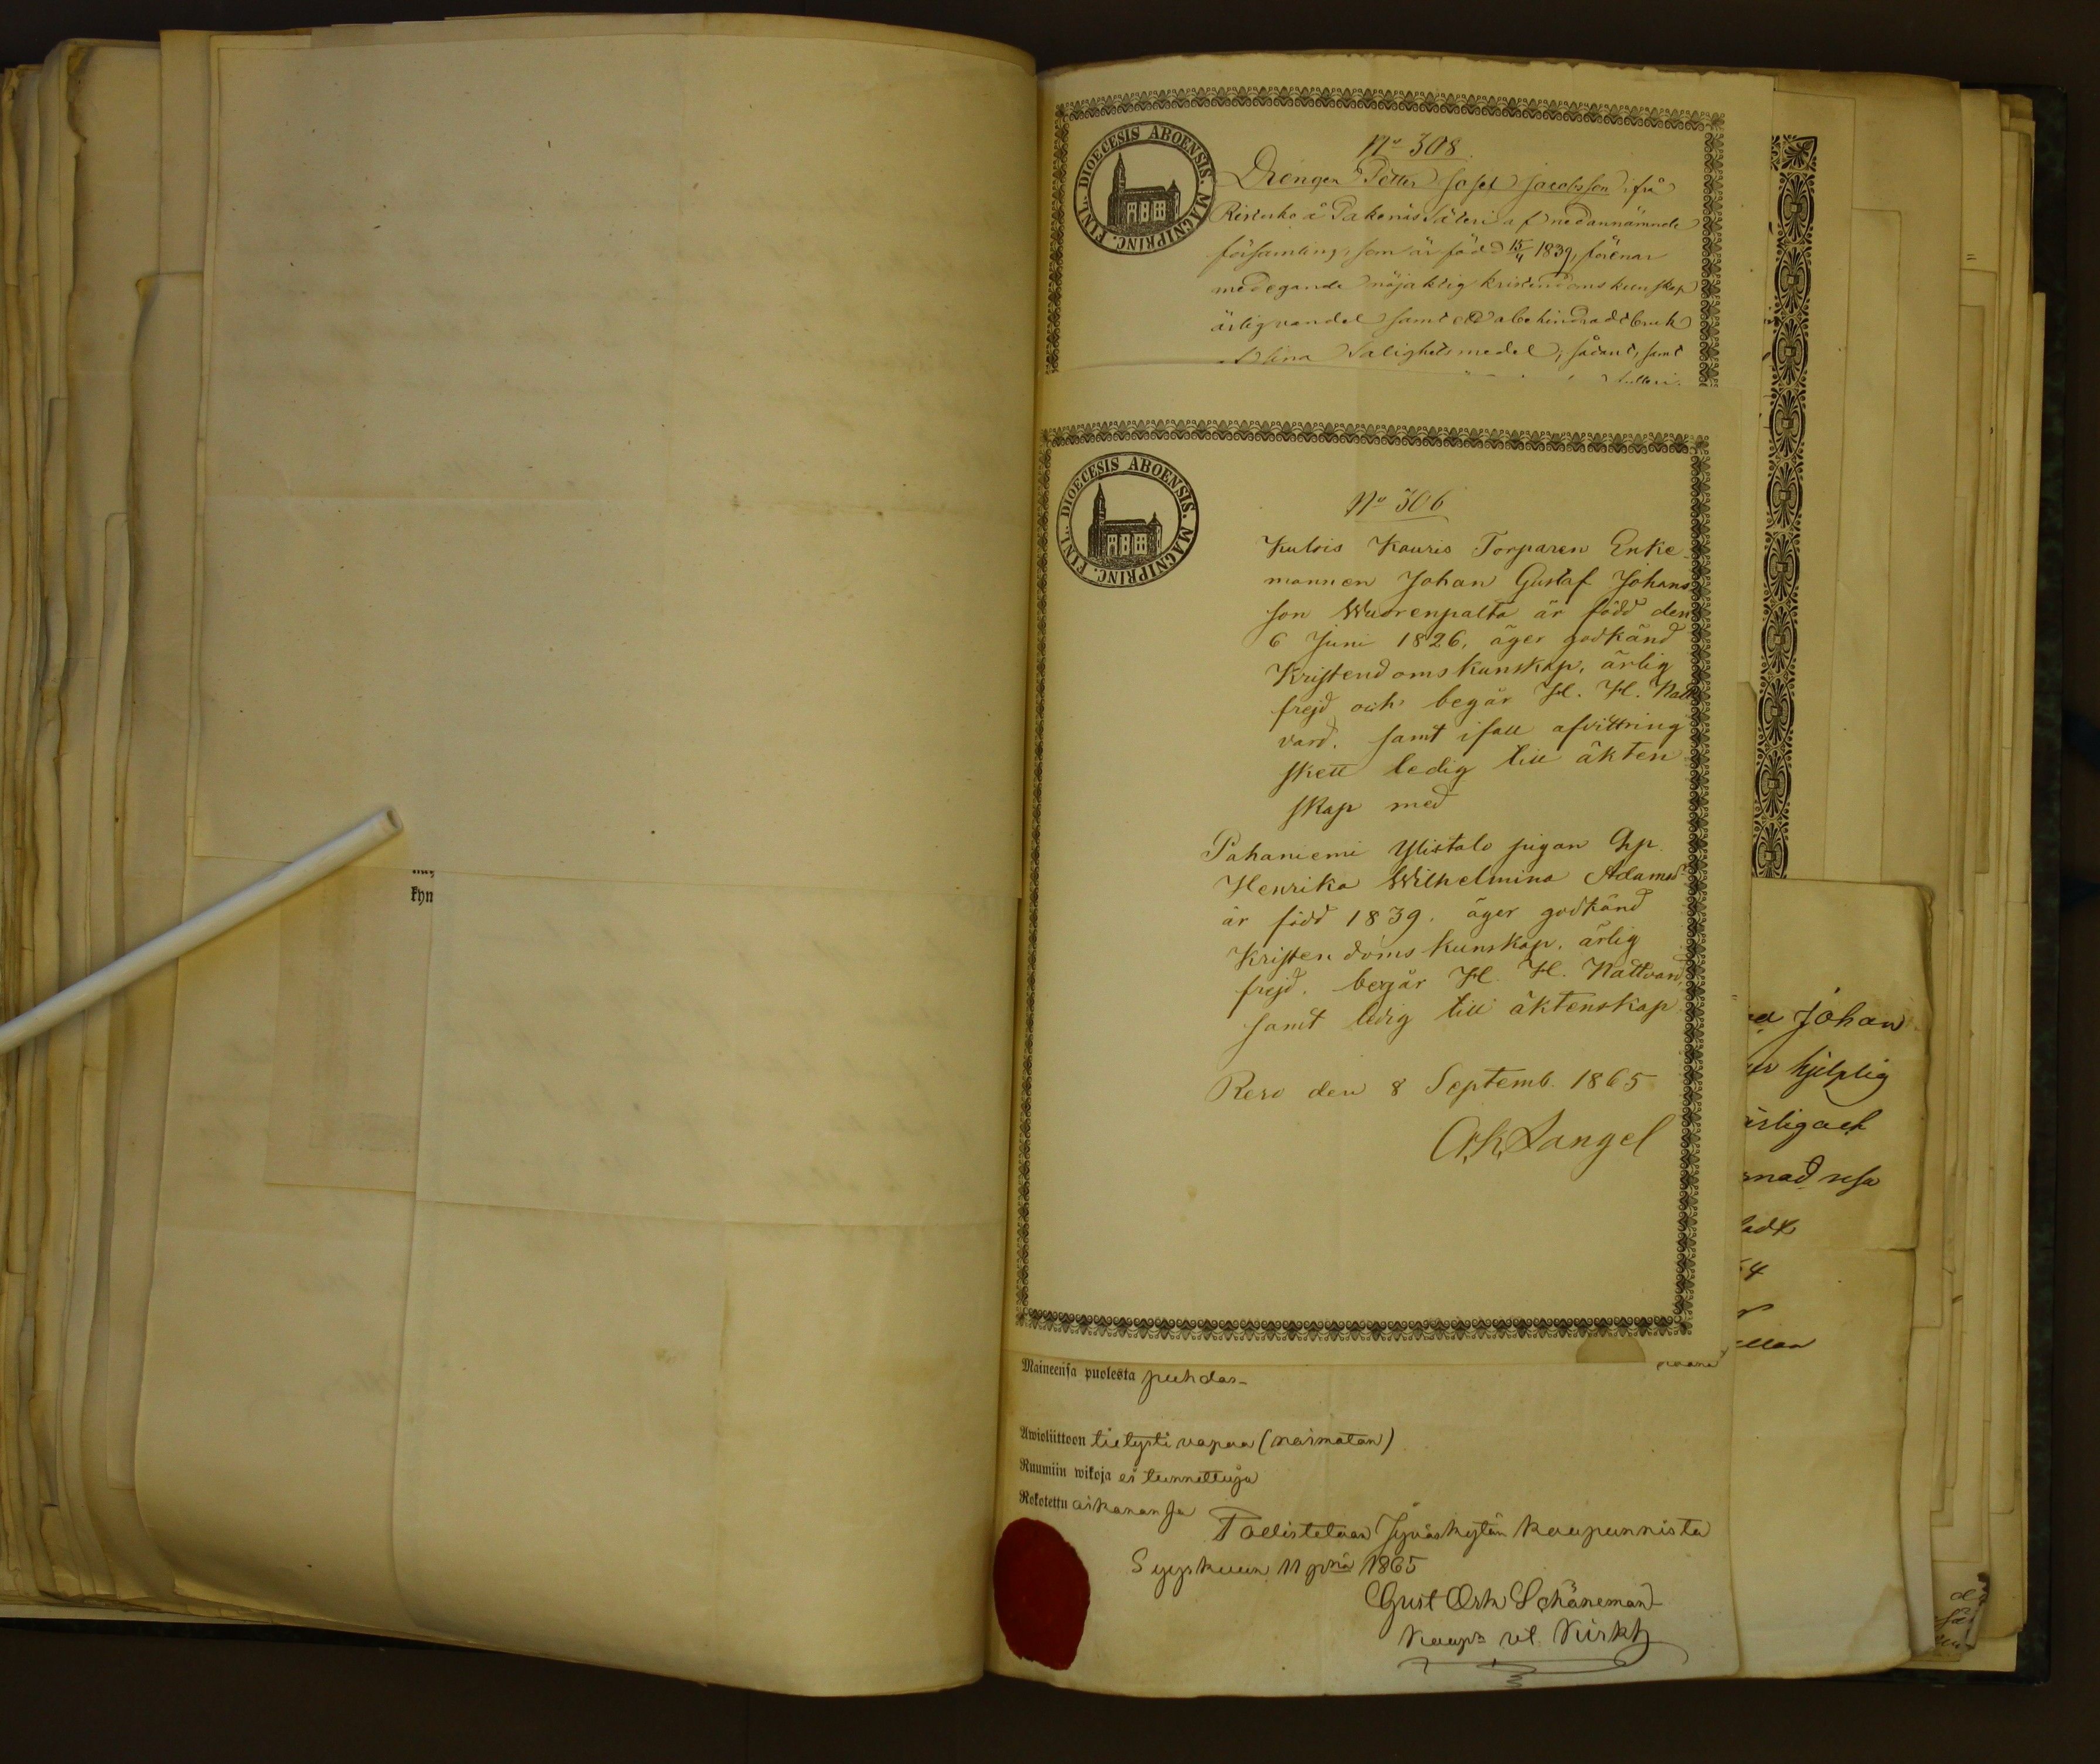 kyn
FINL. DIOECESIS ABOENSIS. MAGNIPRINC.
No 308
Drengen Petter Josef Jacobsson, frå
Ristisko å Pakenäs Säteri af nedannämnde
församling, som är född 15/11 1839, förenar
medegande nöjaktig kristendoms kunskap
ärlig vandel samt obehindradt bruk
sina Salighetsmedel, sådant, samt
FINL. DIOECESIS ABOENSIS. MAGNIPRINC.
No 306
Kulois Kauris Torparen Enke
mannen Johan Gustaf Johans
son Wuorenpalta är född den
6 Juni 1826, äger godkänd
Kristendomskunskap, ärlig
frejd och begår H. H. Natt
vard. samt ifall afvittring
skett ledig till äkten
skap med
Pahaniemi Ylistalo pigan Qvp.
Henrika Wilhelmina Adamsd.
är född 1839. äger godkänd
Kristendoms kunskap, ärlig
frejd. begår H. H. Nattvard,
samt ledig till äktenskap
Reso den 8 Septemb. 1865
A. K. Langel
Maineensa puolesta puhdas
Awioliittoon tietysti vapaa (naimatan)
Ruumiin wikoja ei tunnettuja
Rokotettu aikananſa
Todistetaan Jyväskylän kaupunnista
Syyskuun 11 pnä 1865
Gust Osk Schöneman
Kaup:n vt. Kirkh
a Johan
hjelplig
ärligaet
mad resa
adt
64